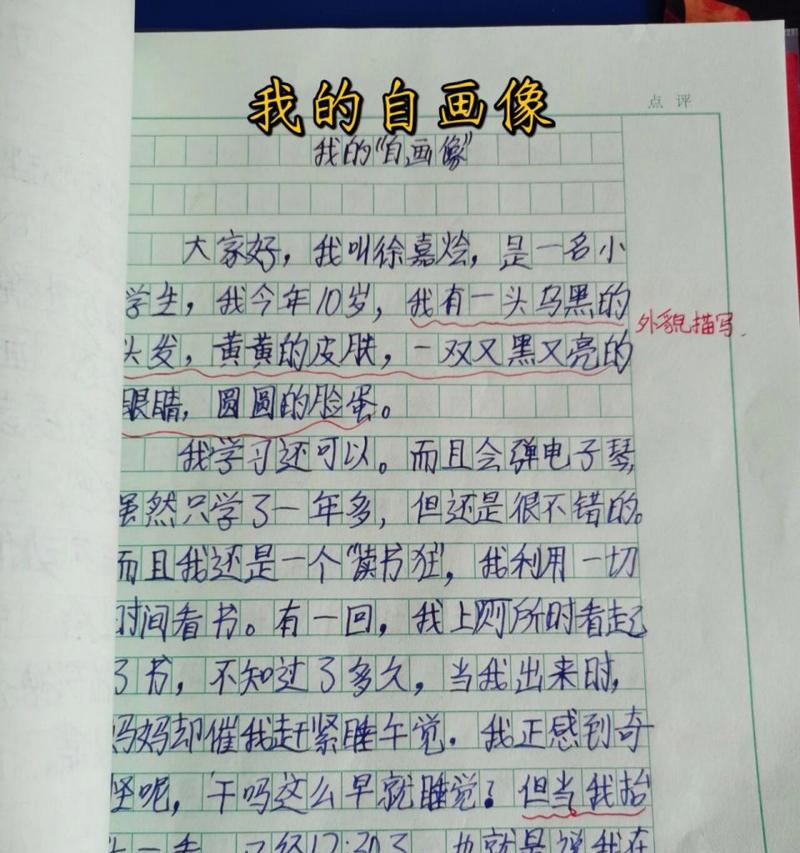 我的自画像
点评
我的“自画像”
大家好，我叫徐嘉烩，是一名小
学生，我今年10岁，我有一头乌黑的
外貌描写.
头发，黄黄的皮肤，一双又黑又亮的
眼睛，圆圆的脸蛋。
我学习还可以。而且会弹电子琴，
虽然只学了一年多，但还是很不错的。
而且我还是一个“读书狂”，我利用一切
时间看书。有一回，我上厕所时看起
了书，不知过了多久，当我出来时，
妈妈却催我赶紧睡午觉．我正感到奇
怪呢，干吗这么早就睡觉？但当我抬
头一看，已经12:30了，也就是说我在